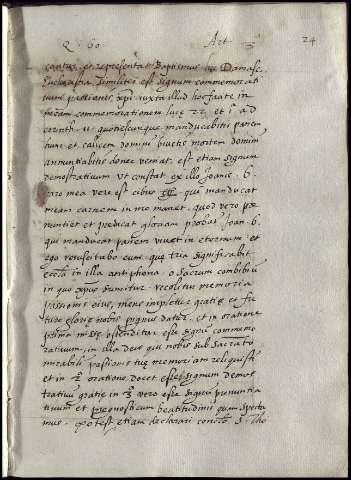 Q. 60 Art. 3 24
cantus, et representat Baptismus hec Damasc.
Eucharistia similiter est signum commemorati
uum passionis xpi iuxta illud hoc facite in
meam commemorationem luce 22 et 1 ad
corinth. 11 quotiescunque manducabitis panem
hunc et calicem domini bibetis mortem domini
annuntiabitis donec veniat. est etiam signum
demostratiuum ut constat ex illo Joanis 6.
caro mea vere est cibus qui manducat
meam carnem in me manet. quod vero pre
nuntiet et predicat gloriam probat Joan. 6.
qui manducat panem viuet in eternum et
ego resuscitabo eum. que tria significabit
ecclā in illa antiphona o sacrum conbibiu
in quo xpus sumitur recolitur memoria
passionis eius, mens impletur gratia et fu
ture glorie nobis pignus datur, et in oratione
prima ostenditur esse signū commemo
ratiuum, in illa deus qui nobis sub sacrato
mirabili passionis tue memoriam reliquisti
et in 2 oratione docet esse signum demos
tratiuū gratie in 3 vero esse signū prenuntia
tiuum et pronosticum beatitudinis quam specta
mus. potest etiam declarari S. Tho